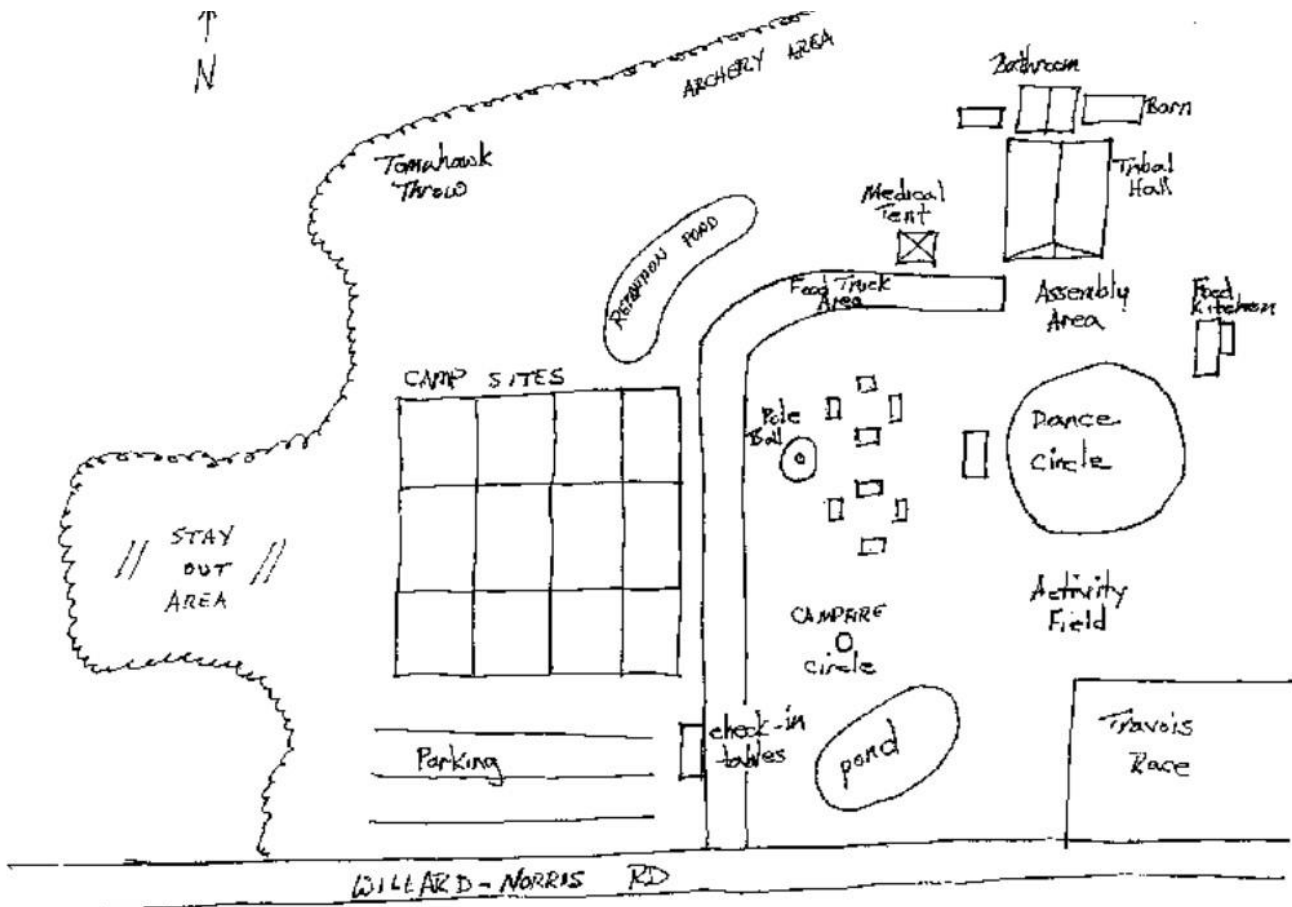 N
ARCHERY AREA
Bathroom
Barn
Tomahawk
Throw
Tribal
Hall
Medical
Tent
RETENTION POND
Food Truck
Area
Assembly
Area
Food
Kitchen
CAMP SITES
Pole
Ball
Dance
Circle
// STAY //
OUT
AREA
Activity
Field
CAMPFIRE
Circle
check-in
tables
Parking
pond
Travois
Race
WILLARD-NORRIS RD